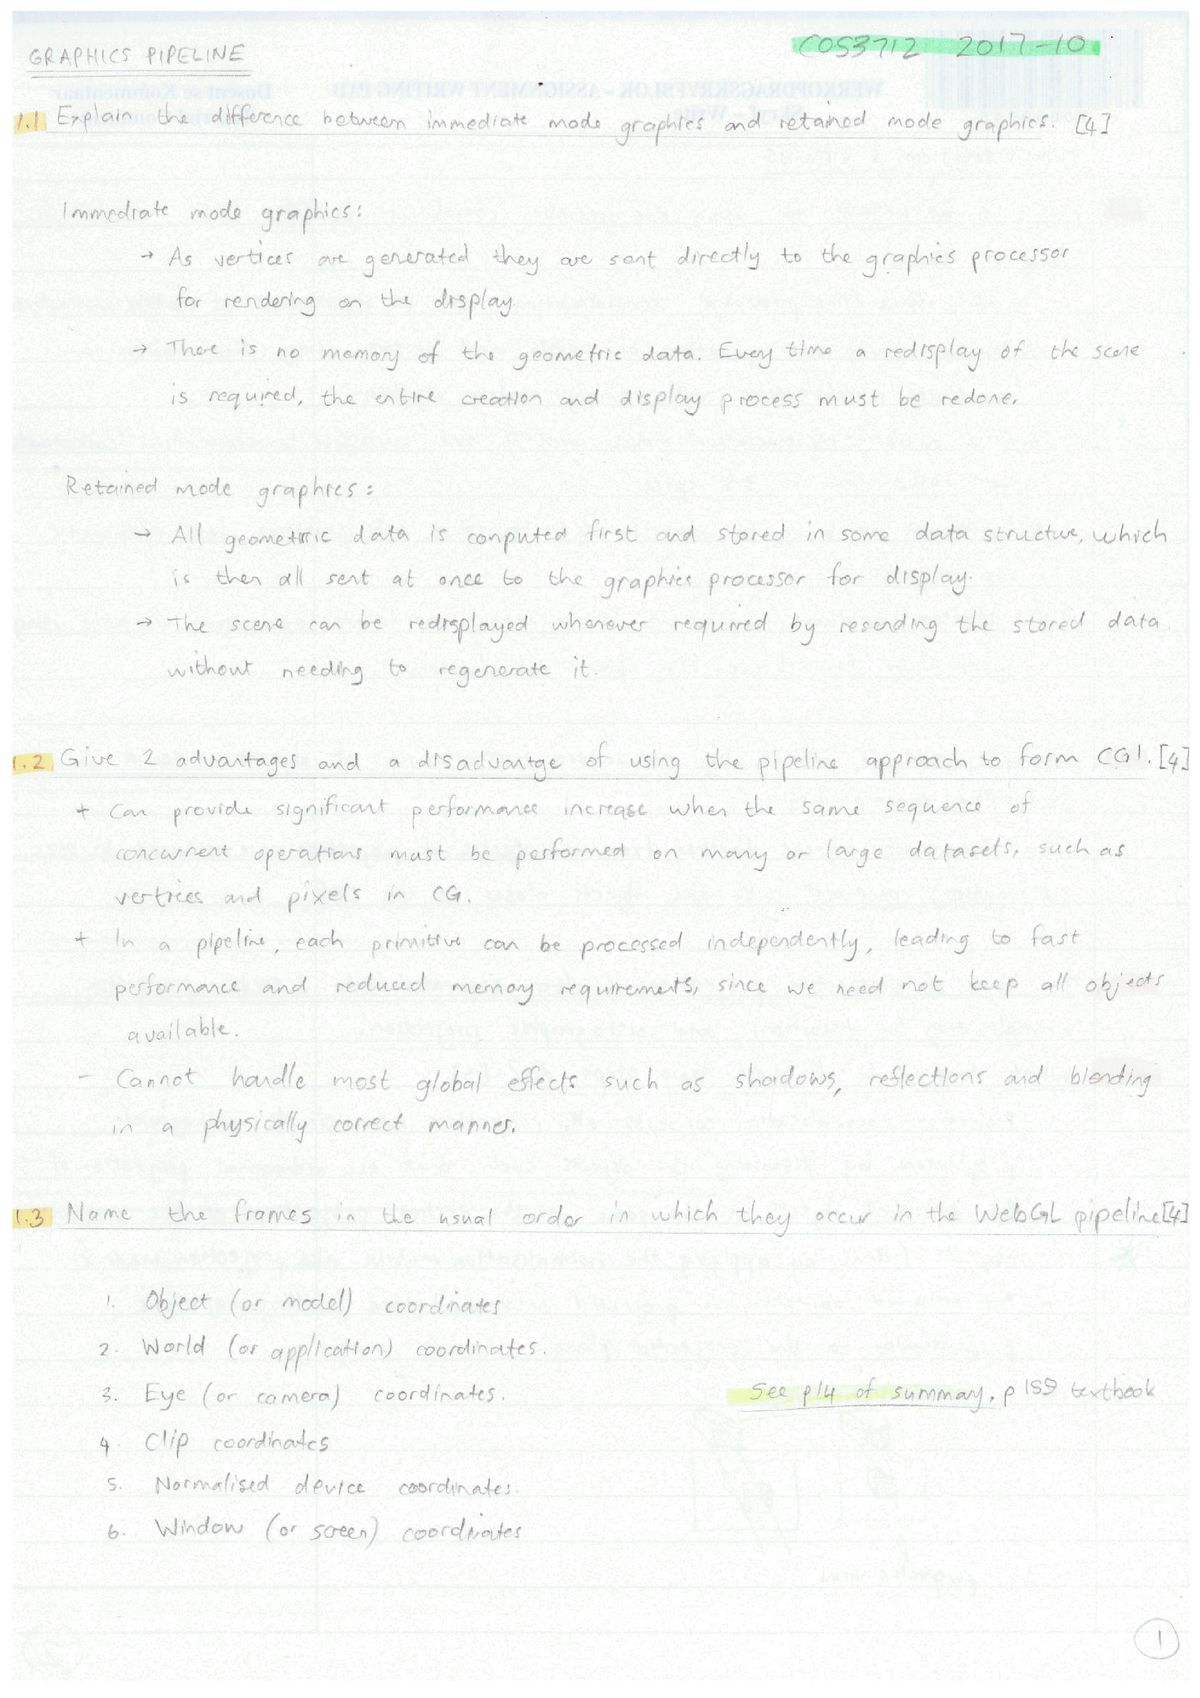 COS3712 2017-10
GRAPHICS PIPELINE
1.1 Explain the difference between immediate mode graphics and retained mode graphics. [4]
Immediate mode graphics:
→ As vertices are generated they are sent directly to the graphics processor
for rendering on the display
→ There is no memory of the geometric data. Every time a redisplay of the scene
is required, the entire creation and display process must be redone.
Retained mode graphics:
→ All geometric data is computed first and stored in some data structure, which
is then all sent at once to the graphics processor for display.
→ The scene can be redisplayed whenever required by resending the stored data
without needing to regenerate it.
1.2 Give 2 advantages and a disadvantge of using the pipeline approach to form CGI. [4]
+ Can provide significant performance increase when the same sequence of
concurrent operations must be performed on many or large datasets, such as
vertices and pixels in CG.
+ In a pipeline, each primitive can be processed independently, leading to fast
performance and reduced memory requirements, since we need not keep all objects
available.
- Cannot handle most global effects such as shadows, reflections and blending
in a physically correct manner.
1.3 Name the frames in the usual order in which they occur in the WebGL pipeline [4]
1. Object (or model) coordinates
2. World (or application) coordinates.
3. Eye (or camera) coordinates.
See p14 of summary, p 159 textbook
4. Clip coordinates
5. Normalised device coordinates.
6. Window (or screen) coordinates
1